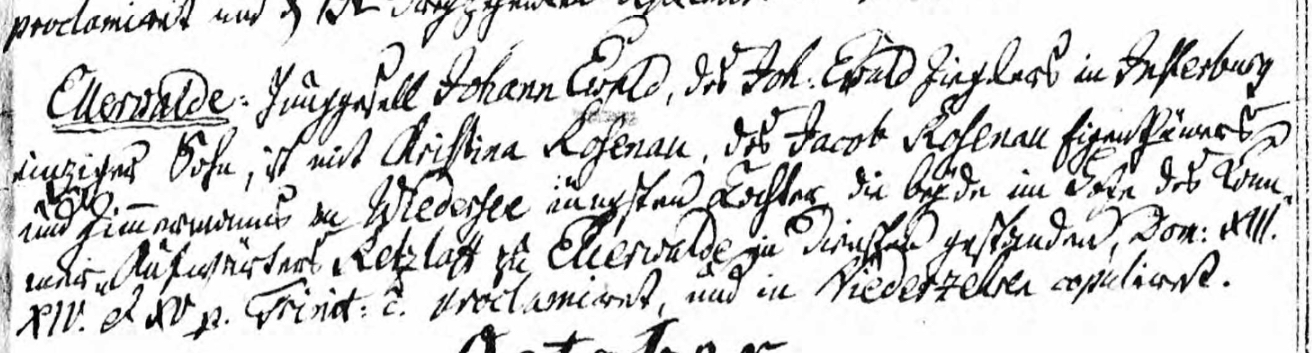 proclamiret und
Ellerwalde: Junggesell Johann Ewald, des Joh: Ewald Zieglers in Insterburg
einziger Sohn, ist mit Christina Rosenau, des Jacob Rosenau Eigenthümers
und Zimmermanns in Wiedersee jüngsten Tochter, die beyde im des
Aufwärters Retzlaff zu Ellerwalde in Diensten gestanden, Dom: XIII.
XIV. et XV p. Trinit: c. proclamiret, und in Niederzehren copuliret.
October